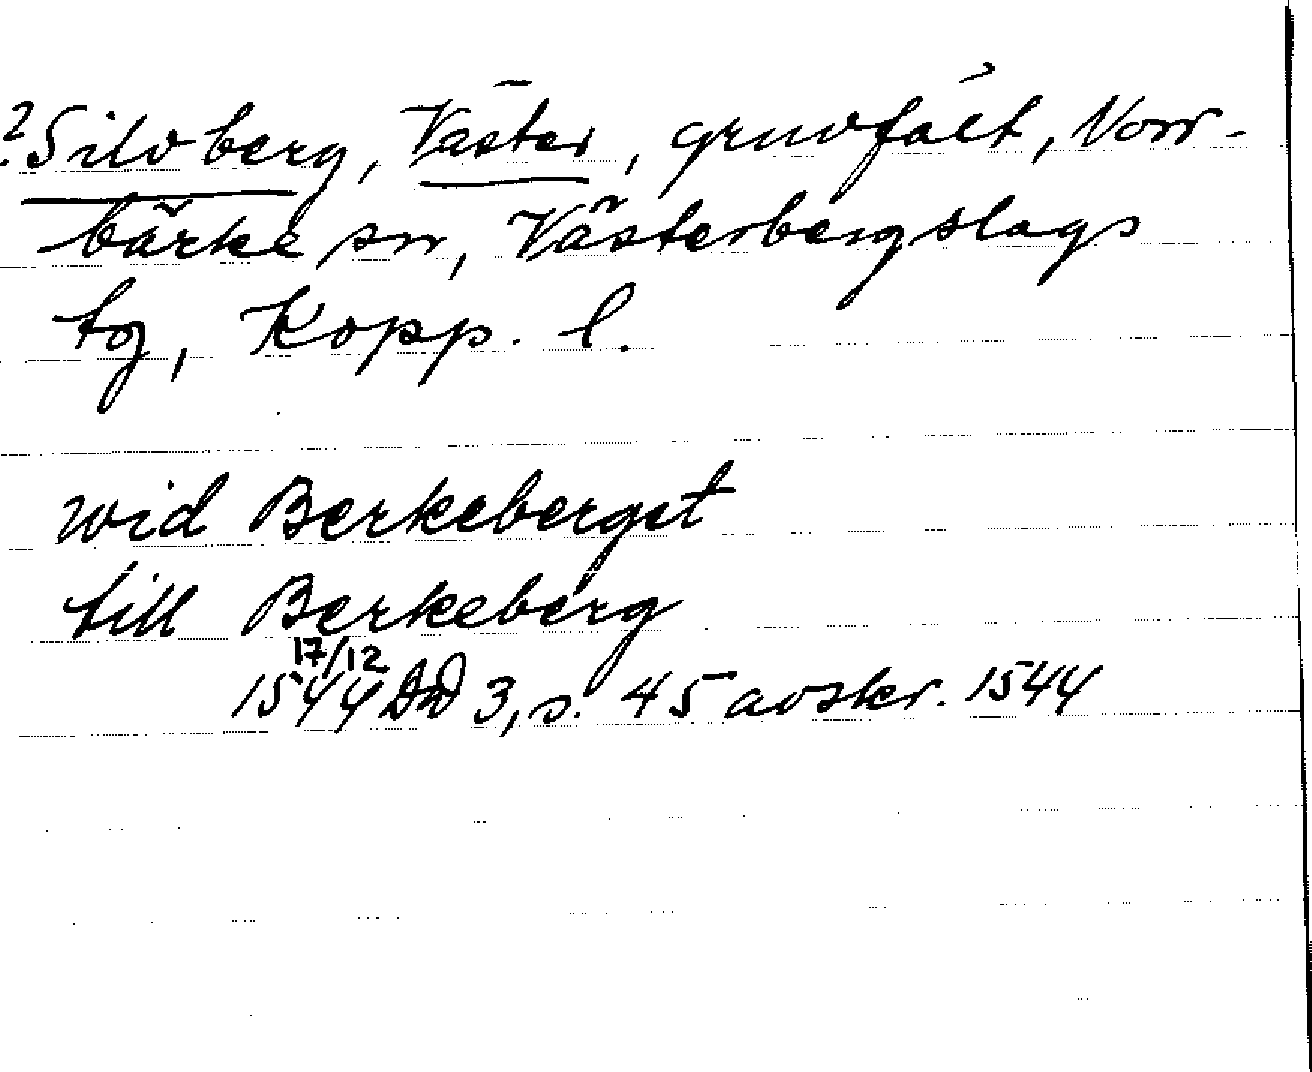 ? Silvberg, Väster, gruvfält, Norr-
bärke sn, Västerbergslags
tg, Kopp. l.
wid Berkeberget
till Berkeberg
1544 17/12 DD 3, s. 45 avskr. 1544